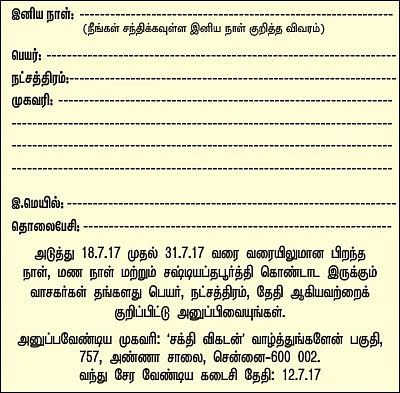 இனிய நாள்: ------------------------------------------------
(நீங்கள் சந்திக்கவுள்ள இனிய நாள் குறித்த விவரம்)
பெயர்: ------------------------------------------------
நட்சத்திரம்:------------------------------------------------
முகவரி: ------------------------------------------------
------------------------------------------------
------------------------------------------------
------------------------------------------------
இ.மெயில்: ------------------------------------------------
தொலைபேசி: ------------------------------------------------
அடுத்து 18.7.17 முதல் 31.7.17 வரை வரையிலுமான பிறந்த
நாள், மண நாள் மற்றும் சஷ்டியப்தபூர்த்தி கொண்டாட இருக்கும்
வாசகர்கள் தங்களது பெயர், நட்சத்திரம், தேதி ஆகியவற்றைக்
குறிப்பிட்டு அனுப்பிவையுங்கள்.
அனுப்பவேண்டிய முகவரி: ‘சக்தி விகடன்’ வாழ்த்துங்களேன் பகுதி,
757, அண்ணா சாலை, சென்னை-600 002.
வந்து சேர வேண்டிய கடைசி தேதி: 12.7.17